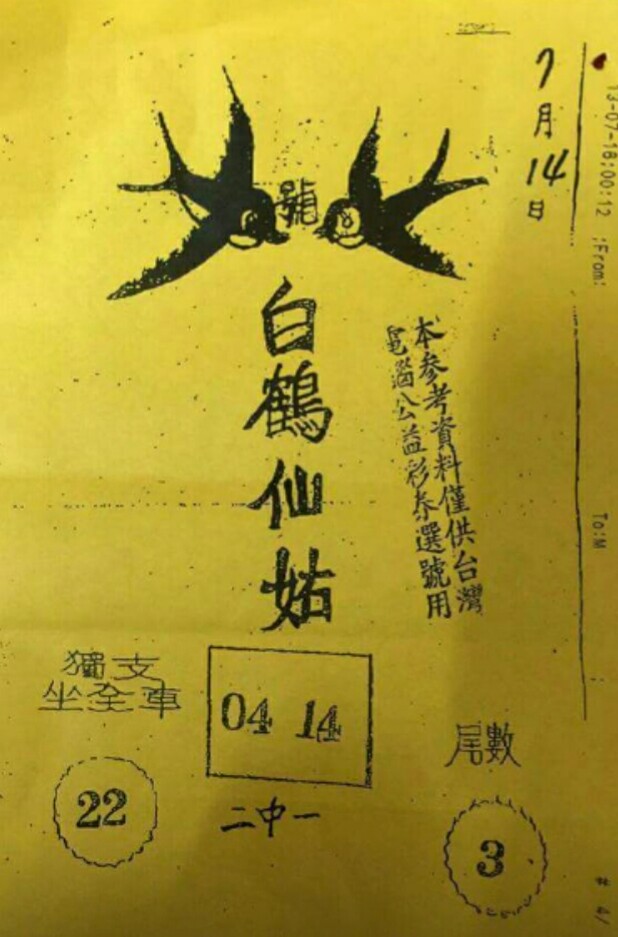 7月14日
號
白鶴仙姑
本參考資料僅供台灣
電腦公益彩券選號用
獨支
坐全車
22
04 14
二中一
尾數
3
13-07-18:00:12 ;From:
To:M
# 4/